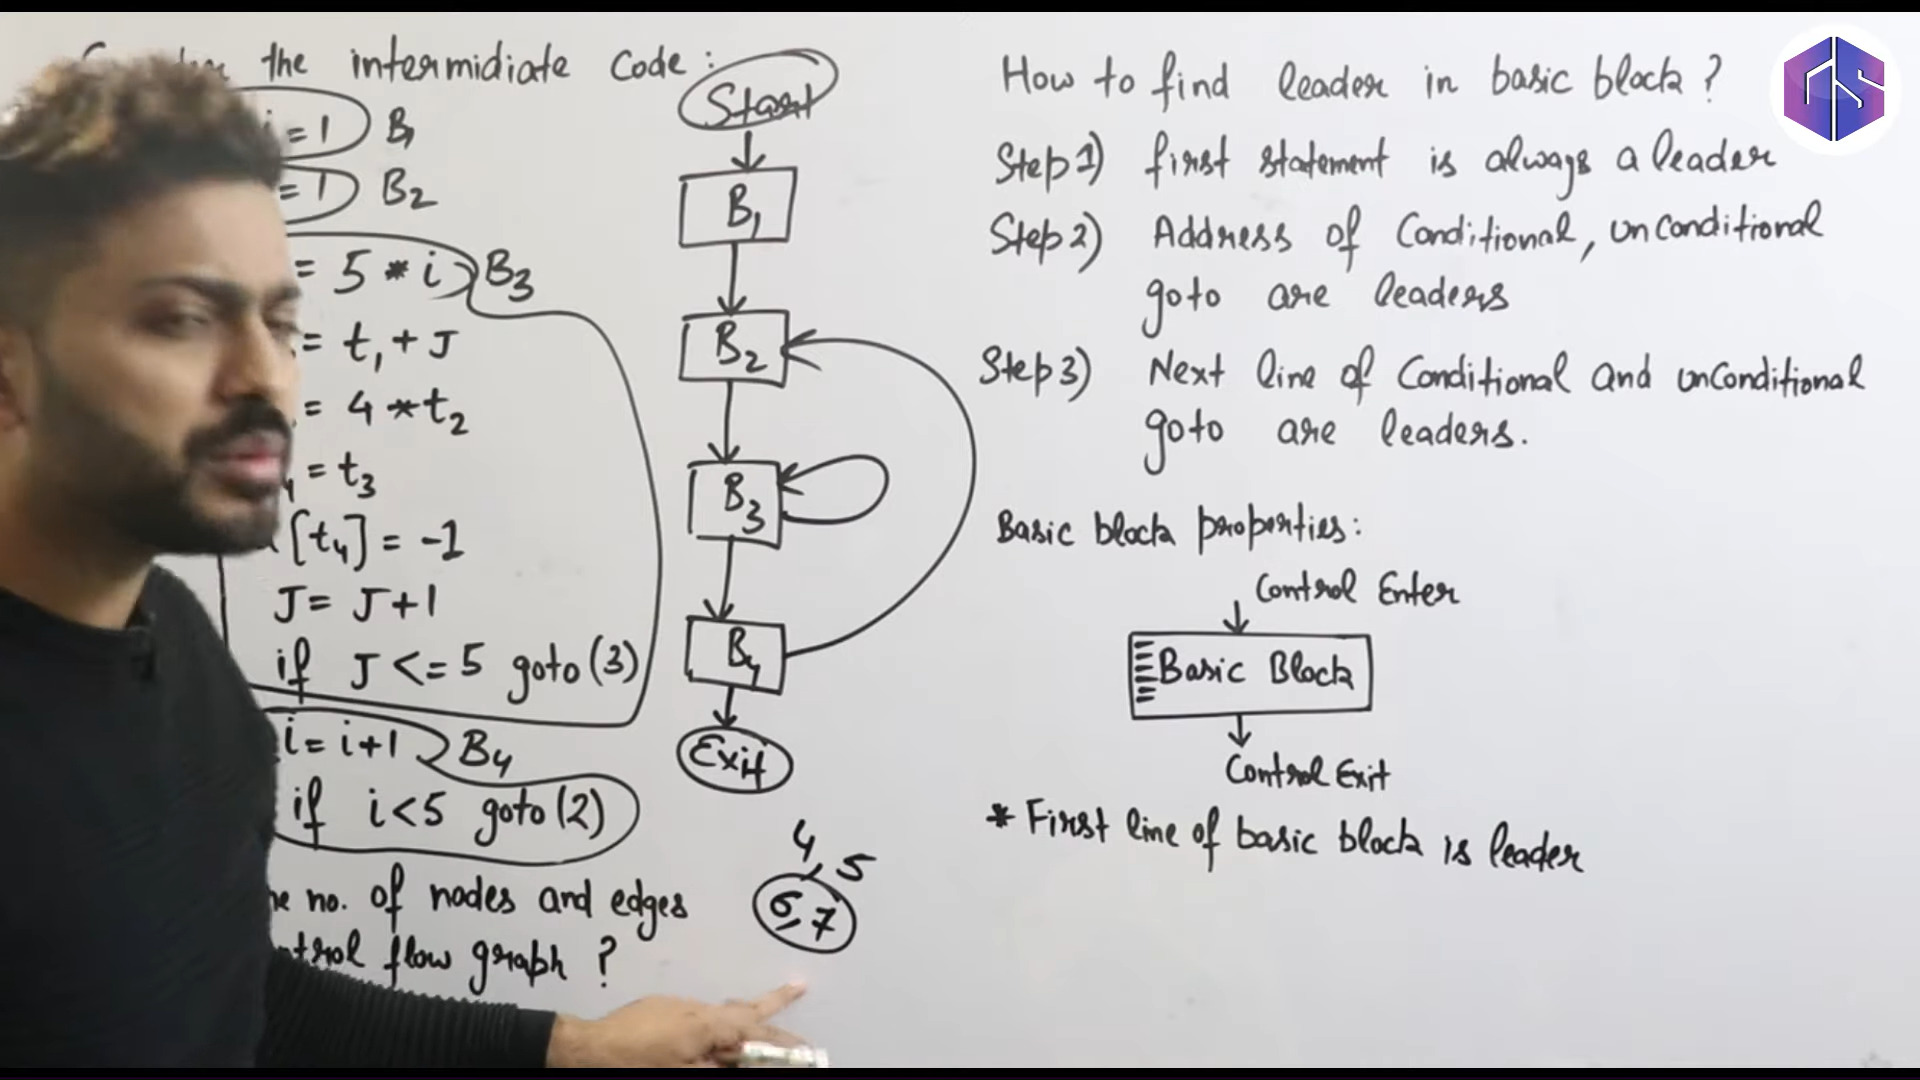 the intermidiate Code:
i = 1 B1
= 1 B2
= 5 * i B3
= t1 + J
= 4 * t2
= t3
[t4] = -1
J = J + 1
if J <= 5 goto (3)
i = i + 1 B4
if i < 5 goto (2)
no. of nodes and edges
flow graph ?
Start
B1
B2
B3
B4
Exit
4, 5
6, 7
How to find leader in basic block ?
Step 1) first statement is always a leader
Step 2) Address of Conditional, unconditional
goto are leaders
Step 3) Next line of Conditional and unconditional
goto are leaders.
Basic block properties:
Control Enter
Basic Block
Control Exit
* First line of basic block is leader